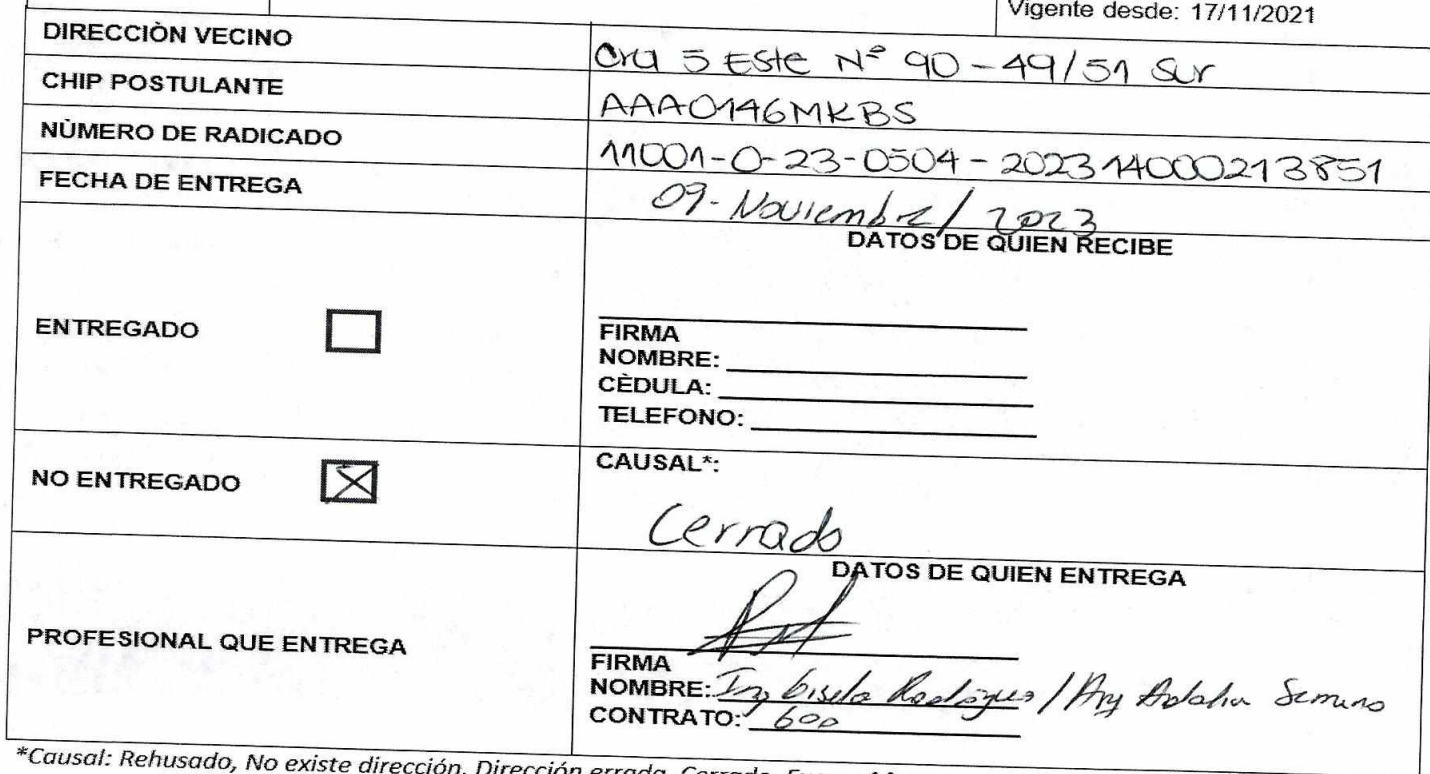 Vigente desde: 17/11/2021
DIRECCIÒN VECINO
Cra 5 Este Nº 90-49/51 Sur
CHIP POSTULANTE
AAA0146MKBS
NÙMERO DE RADICADO
11001-0-23-0504-20231400021 3851
FECHA DE ENTREGA
09-Noviembre/2023
DATOS DE QUIEN RECIBE
ENTREGADO
FIRMA
NOMBRE:
CÈDULA:
TELEFONO:
NO ENTREGADO
CAUSAL*:
Cerrado
DATOS DE QUIEN ENTREGA
PROFESIONAL QUE ENTREGA
FIRMA
NOMBRE: Ing Gisela Rodríguez / Arq
CONTRATO: 600
*Causal: Rehusado, No existe dirección, Dirección errada, Cerrado,